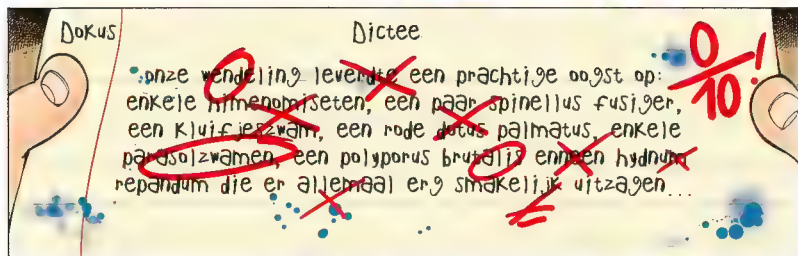 Dokus
Dictee
0/10!
onze wendeling leverdte een prachtige oogst op:
enkele himenomiseten, een paar spinellus fusiger,
een kluifjeszwam, een rode dotus palmatus, enkele
parasolzwamen, een polyporus brutalis enneen hydnum
repandum die er allemaal erg smakelijk uitzagen...